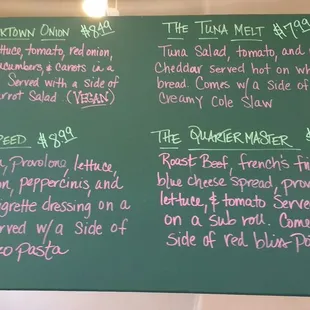 KTOWN ONION $8.49
ttuce, tomato, red onion,
cucumbers, & carots in a
Served with a side of
rrot Salad. (VEGAN)
THE TUNA MELT $7.99
Tuna Salad, tomato, and
Cheddar served hot on wh
bread. Comes w/ a side of
creamy Cole Slaw
PEED $8.99
, Provolone, lettuce,
on, peppercinis, and
igrette dressing on a
erved w/ a side of
zo pasta
THE QUARTERMASTER $
Roast Beef, french's fri
blue cheese spread, prov
lettuce, & tomato Serve
on a sub roll. Come
side of red bliss Po